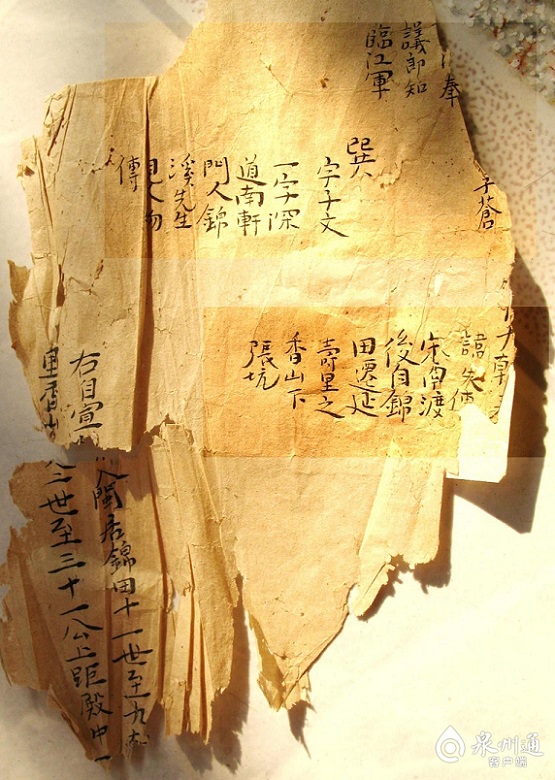 奉
議郎知
臨江軍
子蒼
巽
字子文
一字深
道南軒
門人錦
溪先生
見人物
傳
諱失傳
宋南渡
後自錦
田遷延
壽里之
香山下
張坑
右自宣
入閩居錦田十一世至九
世至三十八公上距殿中
泉州通
客户端